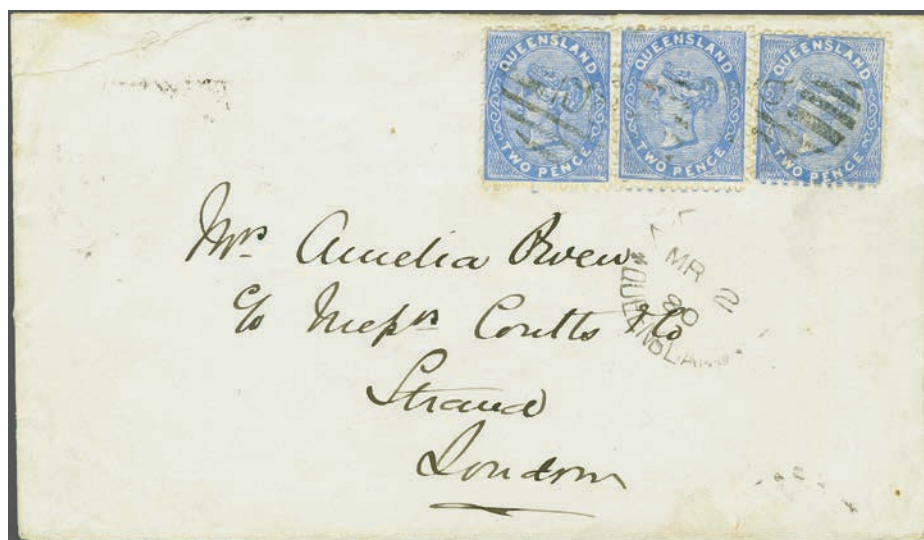 QUEENSLAND QUEENSLAND QUEENSLAND
TWO PENCE TWO PENCE TWO PENCE
Mrs Amelia Owen
c/o Messrs Coutts & Co
Strand
London
MR 2
80
QUEENSLAND